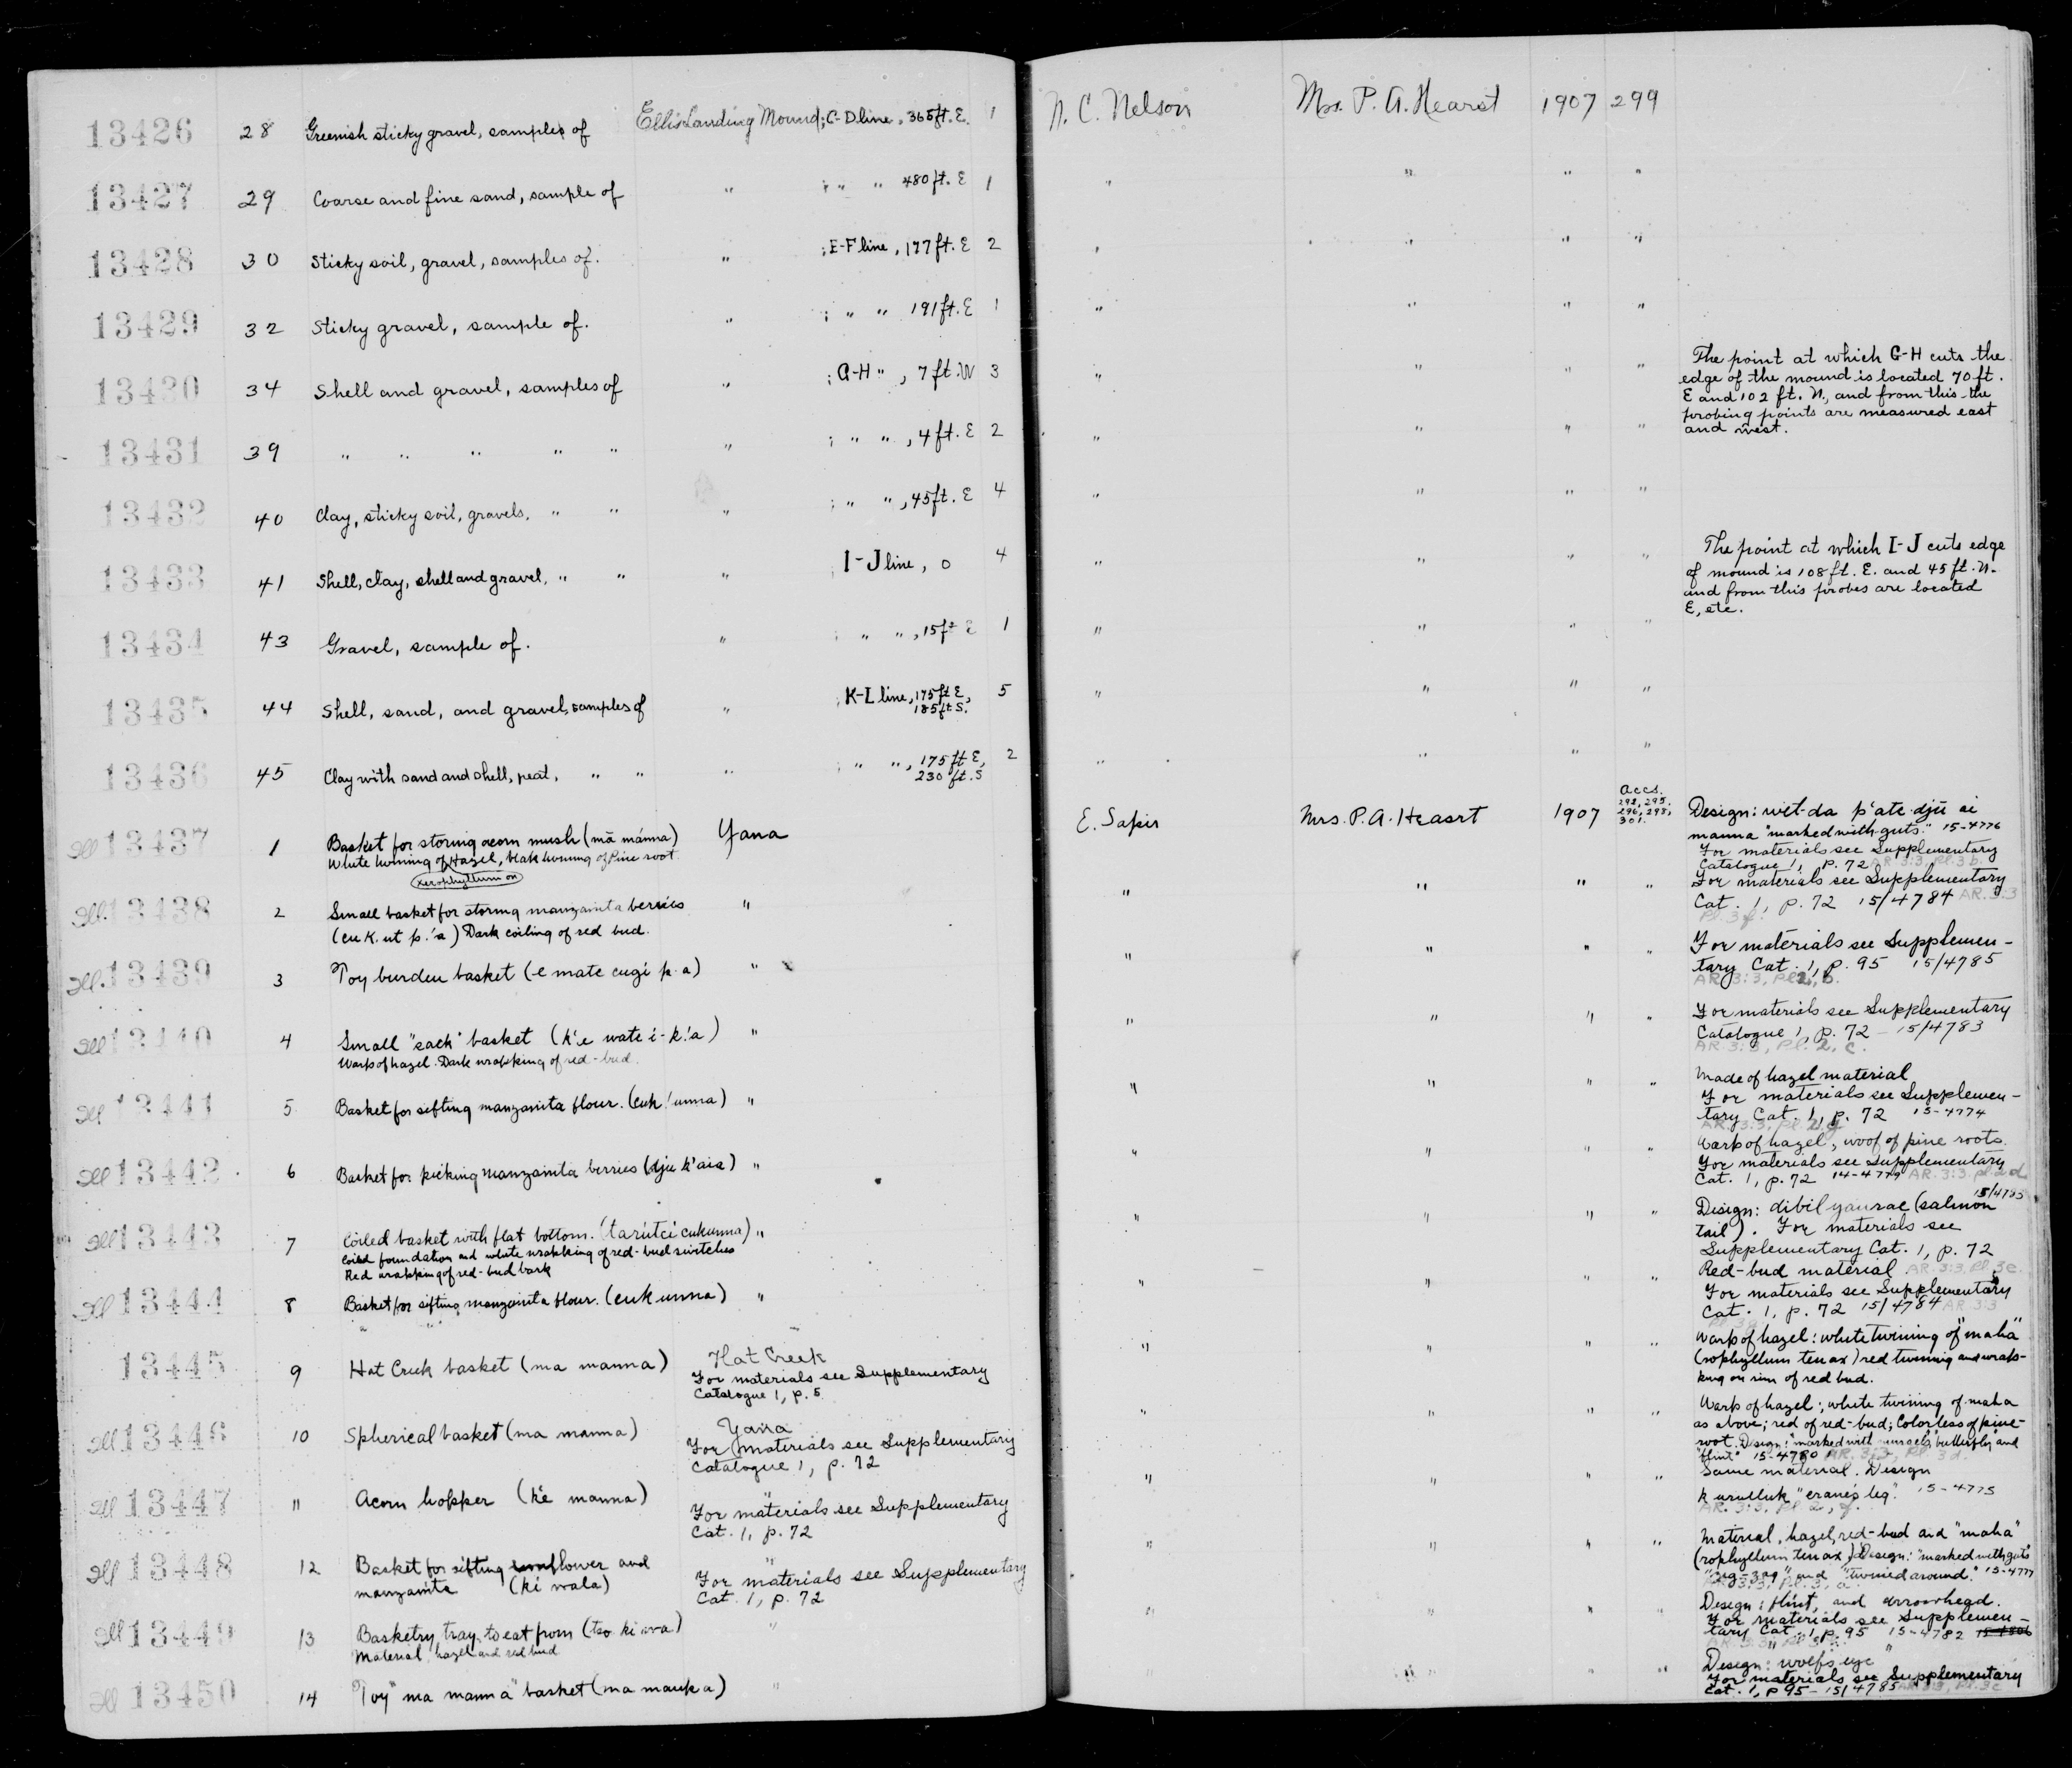 13426 28 Greenish sticky gravel, samples of Ellis Landing Mound; C-D line, 365 ft. E. 1 N. C. Nelson Mrs. P. A. Hearst 1907 299
13427 29 Coarse and fine sand, sample of " ; " " 480 ft. E 1 " " " "
13428 30 Sticky soil, gravel, samples of. " ; E-F line, 177 ft. E 2 " " " "
13429 32 Sticky gravel, sample of. " ; " " 191 ft. E 1 " " " "
13430 34 Shell and gravel, samples of " ; G-H " , 7 ft. W 3 " " " "
The point at which G-H cuts the
edge of the mound is located 70 ft.
E and 102 ft. N., and from this the
probing points are measured east
and west.
13431 39 " " " " " " ; " " , 4 ft. E 2 " " " "
13432 40 Clay, sticky soil, gravels, " " " ; " " , 45 ft. E 4 " " " "
13433 41 Shell, clay, shell and gravel, " " " ; I-J line, 0 4 " " " "
The point at which I-J cuts edge
of mound is 108 ft. E. and 45 ft. N.
and from this probes are located
E, etc.
13434 43 Gravel, sample of. " ; " " , 15 ft E 1 " " " "
13435 44 Shell, sand, and gravel, samples of " ; K-L line, 175 ft E, 5 " " " "
185 ft S.
13436 45 Clay with sand and shell, peat, " " " ; " " , 175 ft E, 2 " " " "
230 ft. S
Ill 13437 1 Basket for storing acorn mush (mā mánna) Yana E. Sapir Mrs. P. A. Hearst 1907
White twining of Hazel, black twining of Pine root
Xerophyllum on
Accs.
292, 295,
296, 298,
301.
Design: wet-da p'ate-djū ai
manna "marked with guts." 15-4776
For materials see Supplementary
Catalogue 1, p. 72 AR. 3:3, Pl. 3 b.
Ill. 13438 2 Small basket for storing manzanita berries " " " " "
(cu k. ut p.'a) Dark coiling of red bud.
For materials see Supplementary
Cat. 1, p. 72 15/4784 AR. 3:3
Pl. 3 f.
Ill. 13439 3 Toy burden basket (e mate cugi p. a) " " " " "
For materials see Supplemen-
tary Cat. 1, p. 95 15/4785
AR. 3:3, Pl. 2, b.
Ill 13440 4 Small "sack" basket (k'e wate i-k!a) " " " " "
Warp of hazel. Dark wrapping of red-bud.
For materials see Supplementary
Catalogue 1, p. 72 - 15/4783
AR. 3:3, Pl. 2, c.
Ill 13441 5 Basket for sifting manzanita flour. (cuk!unna) " " " " "
Made of hazel material
For materials see Supplemen-
tary Cat. 1, p. 72 15-4774
Ill 13442 6 Basket for picking manzanita berries (dju k'aia) " " " " "
Warp of hazel, woof of pine roots.
For materials see Supplementary
Cat. 1, p. 72 14-4779 AR. 3:3. pl. 2 d
Ill 13443 7 Coiled basket with flat bottom. (tarútci cukunna) " " " " "
Coiled foundation and white wrapping of red-bud switches
Red wrapping of red-bud bark
15/4785
Design: dibilyaurae (salmon
tail). For materials see
Supplementary Cat. 1, p. 72
Ill 13444 8 Basket for sifting manzanita flour. (cuk unna) " " " " "
Red-bud material. AR. 3:3. Pl. 3e.
For materials see Supplementary
Cat. 1, p. 72 15/4784 AR 3:3
13445 9 Hat Creek basket (ma manna) Hat Creek " " " "
For materials see Supplementary
Catalogue 1, p. 5
Warp of hazel: white twining of "maha"
(rophyllum tenax) red twining and wrap-
ping on rim of red bud.
Ill 13446 10 Spherical basket (ma manna) Yana " " " "
For materials see Supplementary
Catalogue 1, p. 72
Warp of hazel; white twining of maha
as above; red of red-bud; Colorless of pine-
root. Design: "marked with butterfly" and
"flint" 15-4780 AR. 3:3, Pl. 3 d.
Ill 13447 11 Acorn hopper (k'e manna) " " " " "
For materials see Supplementary
Cat. 1, p. 72
Same material. Design
k urulluk "crane's leg." 15-4775
AR. 3:3, Pl 2, g.
Ill 13448 12 Basket for sifting sunflower and " " " " "
manzanita (ki wala) For materials see Supplementary
Cat. 1, p. 72
Material, hazel, red-bud and "maha"
(rophyllum tenax) Design: "marked with guts"
"zig-zag" and "twined around." 15-4777
Ill 13449 13 Basketry tray, to eat from (tso ki wa) " " " " "
Material hazel and red bud
Design: flint, and arrowhead.
For materials see Supplemen-
tary Cat. 1, p. 95 15-4782
Ill 13450 14 Toy "ma manna" basket (ma mauk a) " " " " "
Design: wolf's eye
For materials see Supplementary
Cat. 1, p 95 - 15/4785